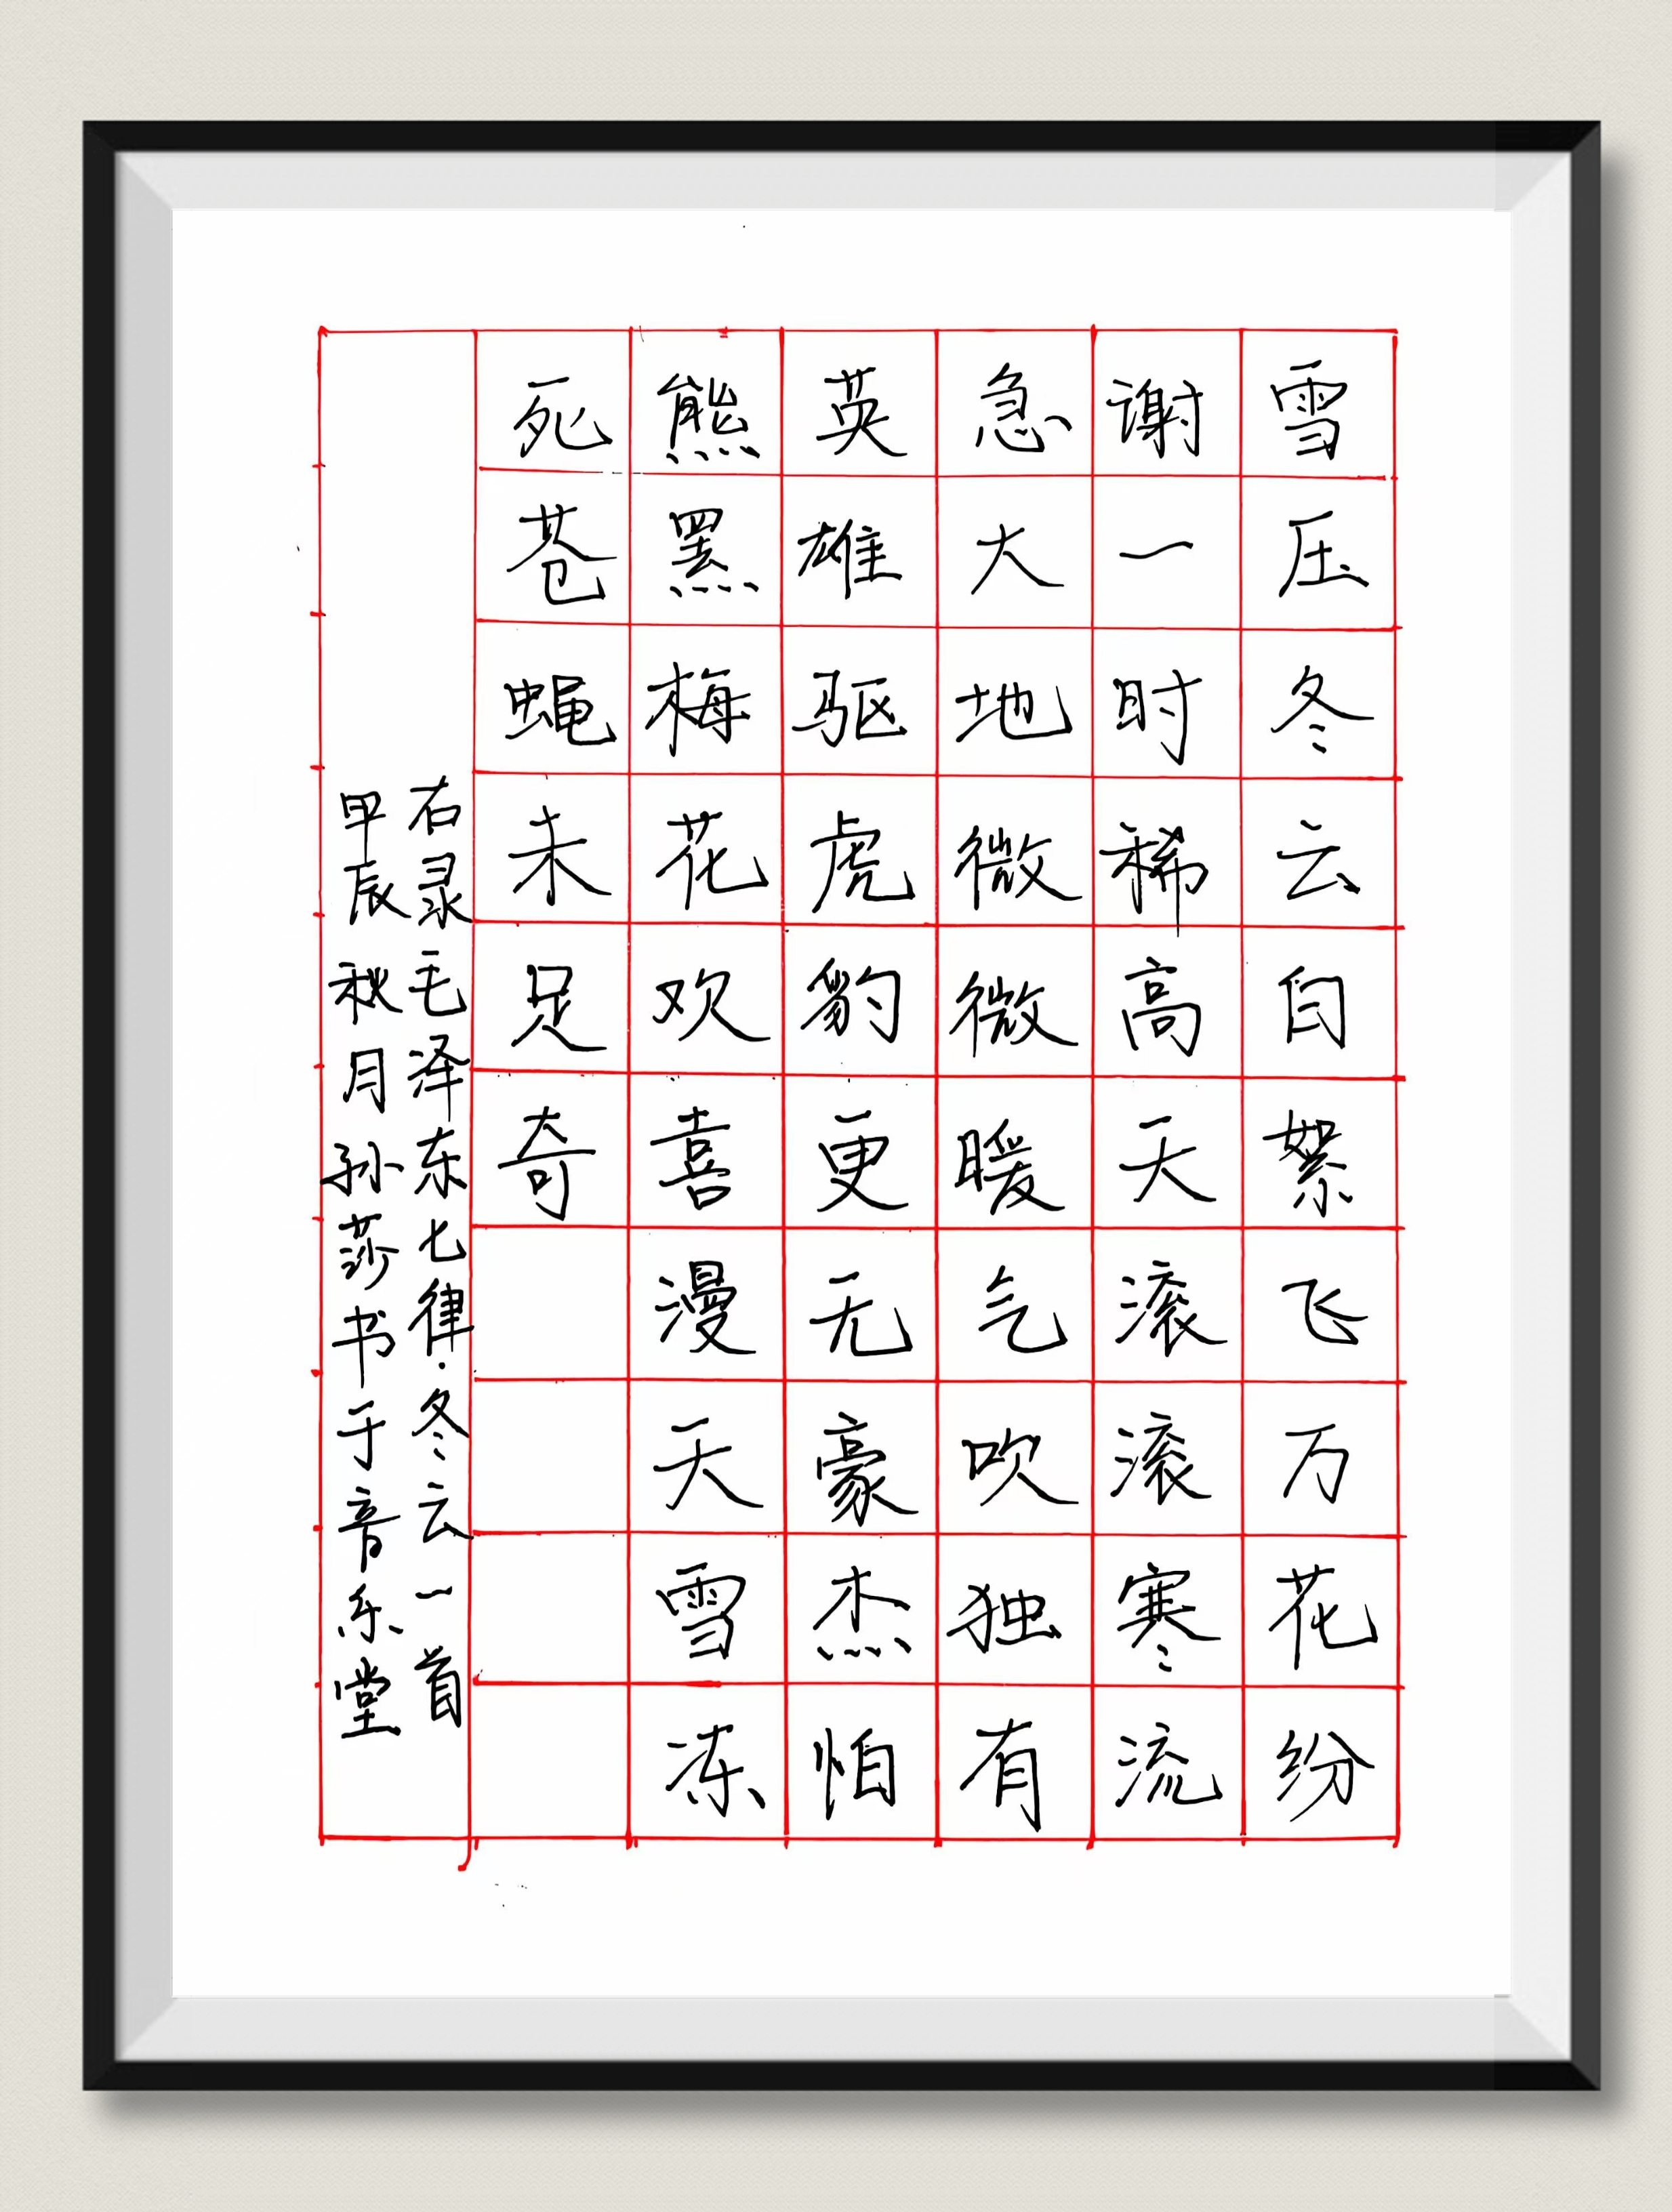 雪压冬云白絮飞万花纷
谢一时稀高天滚滚寒流
急大地微微暖气吹独有
英雄驱虎豹更无豪杰怕
熊罴梅花欢喜漫天雪冻
死苍蝇未足奇
右录毛泽东七律·冬云一首
甲辰秋月孙莎书于音乐堂